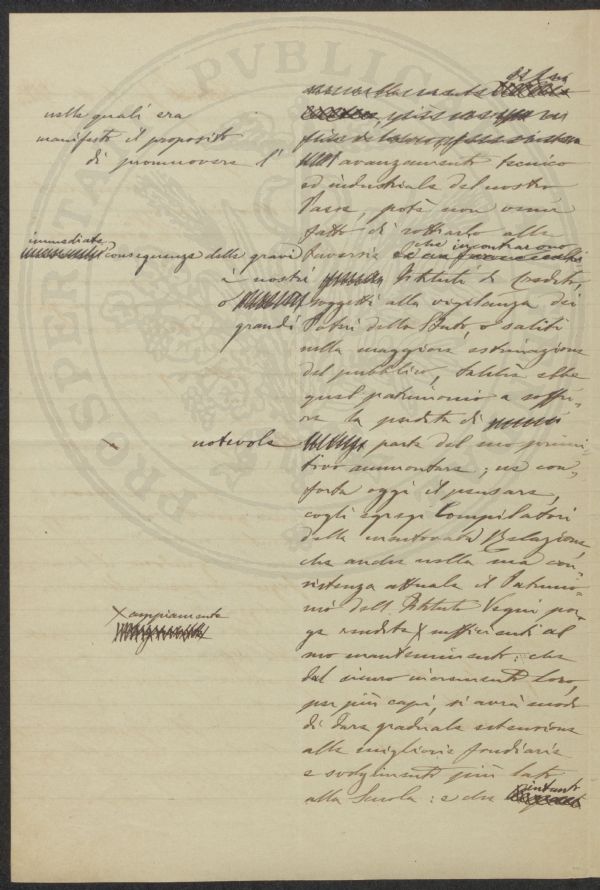 PROSPERITÀ PVBLICA
nelle quali era
manifesto il proposito
di promuovere l'
avanzamento tecnico
ed industriale del nostro
Paese, potè non venir
fatto di sottrarlo alle
immediate
conseguenza delle gravi
traversie
che incontrarono
i nostri
Istituti di Credito,
o
soggetti alla vigilanza dei
grandi
Poteri dello Stato, o saliti
nella maggiore estimazione
del pubblico, talchè ebbe
quel patrimonio a soffri-
re la perdita di
notevole
parte del suo primi-
tivo ammontare; ne con-
forta oggi il pensare,
cogli egregi Compilatori
della mentovata Relazione,
che anche nella sua con-
sistenza attuale il Patrimo-
nio dell'Istituto Vegni por-
ga rendite X sufficienti al
X ampiamente
suo mantenimento: che
dal sicuro incremento loro,
per più capi, si avrà modo
di dare graduale estensione
alle migliorie fondiarie
e svolgimento più lato
alla Scuola: e che
intanto